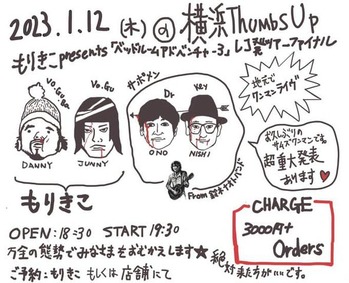 2023.1.12(木)@横浜Thumbs Up
もりきこpresents「ベッドルームアドベンチャー3」レコ発ツアーファイナル
サポメン
地元でワンマンライブ
Vo.Gu.
Vo.Gu
Dr
Key
DANNY
JUNNY
ONO
NISHI
From 鈴木ヤスオバンド
お久しぶりの
サムズワンマンです。
超重大発表
あります♥
もりきこ
OPEN:18:30 START 19:30
万全の態勢でみなさまをおむかえします★
絶対来た方がいいです。
ご予約:もりきこ もしくは店舗にて
CHARGE
3000円+
Orders